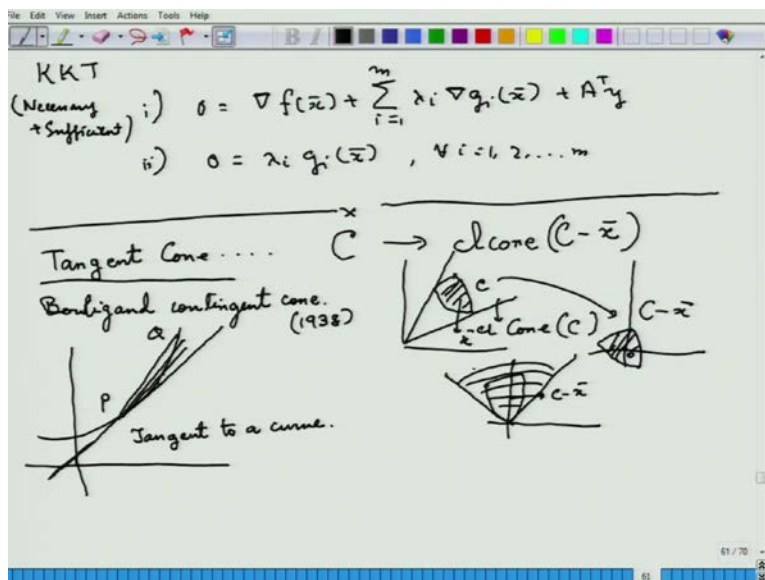 File Edit View Insert Actions Tools Help
B I
KKT
(Necessary + Sufficient)
i) 0 = ∇f(x̄) + Σ_{i=1}^{m} λi ∇gi(x̄) + Aᵀy
ii) 0 = λi gi(x̄), ∀ i=1, 2, .... m
Tangent Cone ....
C → cl cone (C - x̄)
Bouligand contingent cone.
(1938)
C
x̄
cl Cone (C)
C - x̄
Q
P
Tangent to a curve.
C - x̄
61 / 70
61